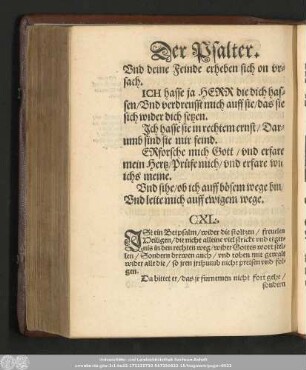 Der Psalter.
Vnd deine Feinde erheben sich on vr-
sach.
ICH hasse ja HERR die dich has-
sen/Vnd verdreusst mich auff sie/das sie
sich wider dich setzen.
Ich hasse sie in rechtem ernst/Dar-
umb sind sie mir feind.
ERforsche mich Gott/vnd erfare
mein Hertz/Prüfe mich/vnd erfare wie
ichs meine.
Vnd sihe/ob ich auff bösem wege bin/
Vnd leite mich auff ewigem wege.
CXL.
IST ein Betpsalm/wider die stoltzen/
Heiligen/die nicht alleine viel stricke vnd
in den rechten weg/wider Gottes wort
len/Sondern drewen auch/vnd toben mit gewalt
wider alle die/so jren jrthumb nicht preisen vnd fol-
gen.
Da bittet er/das jr furnemen nicht fort gehe/
sondern